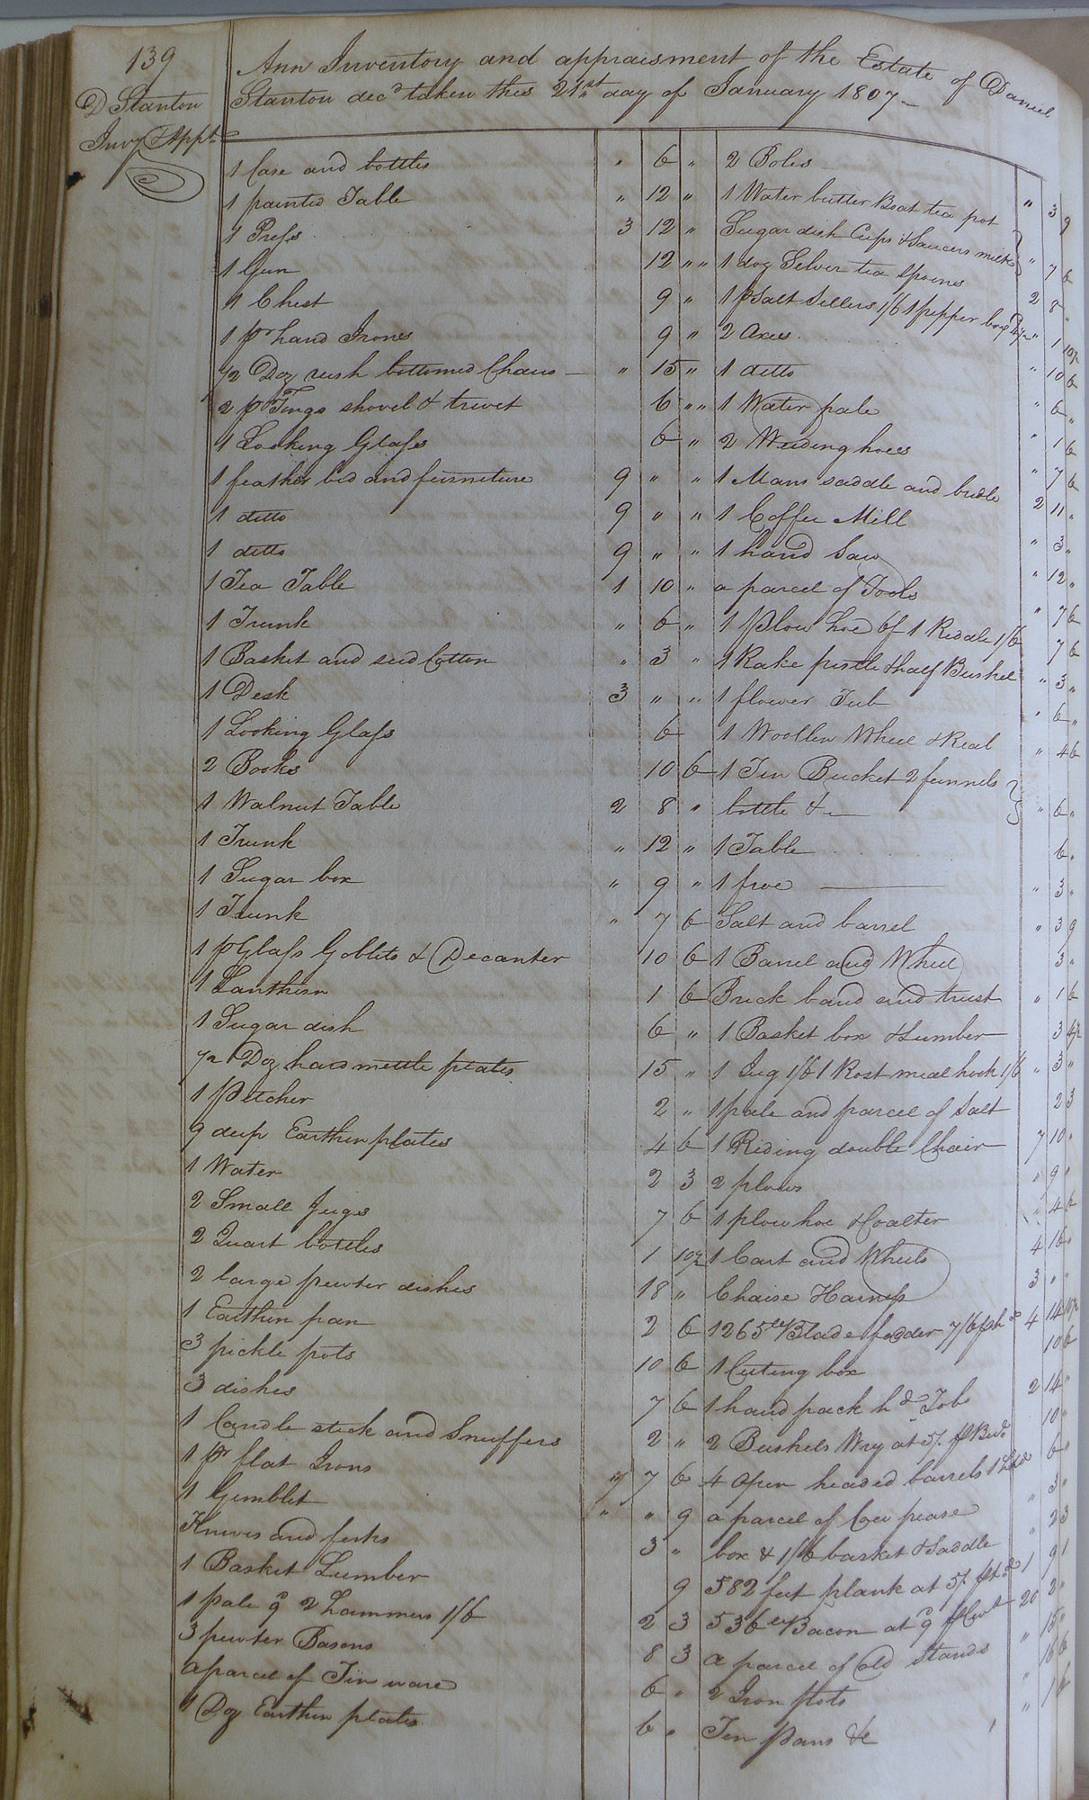 139
D Stanton
Invy & Appt
Ann Inventory and appraisment of the Estate of Daniel
Stanton decd taken this 21st day of January 1807
1 Case and bottles " 6 "
1 painted Table " 12 "
1 Press 3 12 "
1 Gun 12 "
1 Chest 9 "
1 pr hand Irons 9 "
1/2 Doz rush bottomed Chairs " 15 "
2 pr Tongs shovel & trivet 6 "
1 Looking Glass 6 "
1 feather bed and furniture 9 " "
1 ditto 9 " "
1 ditto 9 " "
1 Tea Table 1 10 "
1 Trunk " 6 "
1 Basket and seed Cotton " 3 "
1 Desk 3 " "
1 Looking Glass 6
2 Books 10 6
1 Walnut Table 2 8 "
1 Trunk " 12 "
1 Sugar box " 9 "
1 Trunk " 7 6
1 p Glass Goblets & Decanter 10 6
1 Lanthern 1 6
1 Sugar dish 6 "
1/2 Doz hard mettle plates 15 "
1 Pitcher 2 "
9 deep Earthen plates 4 6
1 Water 2 3
2 Small Jugs 7 6
2 Quart bottles 1 10½
2 large pewter dishes 18 "
1 Earthen pan 2 6
3 pickle pots 10 6
3 dishes 7 6
1 Candle stick and Snuffers 2 "
1 pr flat Irons 7 6
1 Gimblet " " 9
Knives and forks 3 "
1 Basket Lumber 9
1 pale 9 2 hammers 1/6 2 3
3 pewter Basons 8 3
a parcel of Tin ware 6 "
1 Doz Earthen plates 6 "
2 Boles " 3 9
1 Water butter Boat tea pot
Sugar dish Cups & Saucers milk " 7 6
1 doz Silver tea Spoons 2 8
1 p Salt Sellers 1/6 1 pepper box 1 10½
2 Axes " 10 6
1 ditto " 6 "
1 Water pale " 1 6
2 Weeding hoes " 7 6
1 Mans saddle and bridle 2 11 "
1 Coffee Mill " 3 "
1 hand Saw " 12 "
a parcel of Tools " 7 6
1 Plow hoe 6/ 1 Riddle 1/6 7 6
1 Rake pistle & half Bushel " 3 "
1 flower Tub " 6 "
1 Woollen Wheel & Real " 4 6
1 Tin Bucket 2 funnels
bottle &c " 6 "
1 Table 6 "
1 froe " 3 "
Salt and barrel " 3 9
1 Barrel and Wheel 3 "
Buck band and trust " 1 6
1 Basket box & Lumber 3 4½
1 Jug 1/6 1 Rost meal hook 1/6 " 3 "
1 pale and parcel of Salt 2 3
1 Riding double Chair 7 10 "
2 plows " 9 "
1 plow hoe & Coalter 4 6
1 Cart and Wheels 4 16 "
Chaise Harness 3 " "
1265 lb Blade fodder 7/6 4 14 10½
1 Cuting box 10 6
1 hand pack hd Tob 2 14 "
2 Bushels Wry at 5/ 10 "
4 open headed barrels 6 "
a parcel of Cow pease " 3 "
box & 1/6 basket & Saddle " 2 3
582 feet plank at 5/ 1 9 1
536 lb Bacon at 9 20 2 "
a parcel of old Stands " 15 "
2 Iron pots " 16 6
Tin pans &c " 1 6